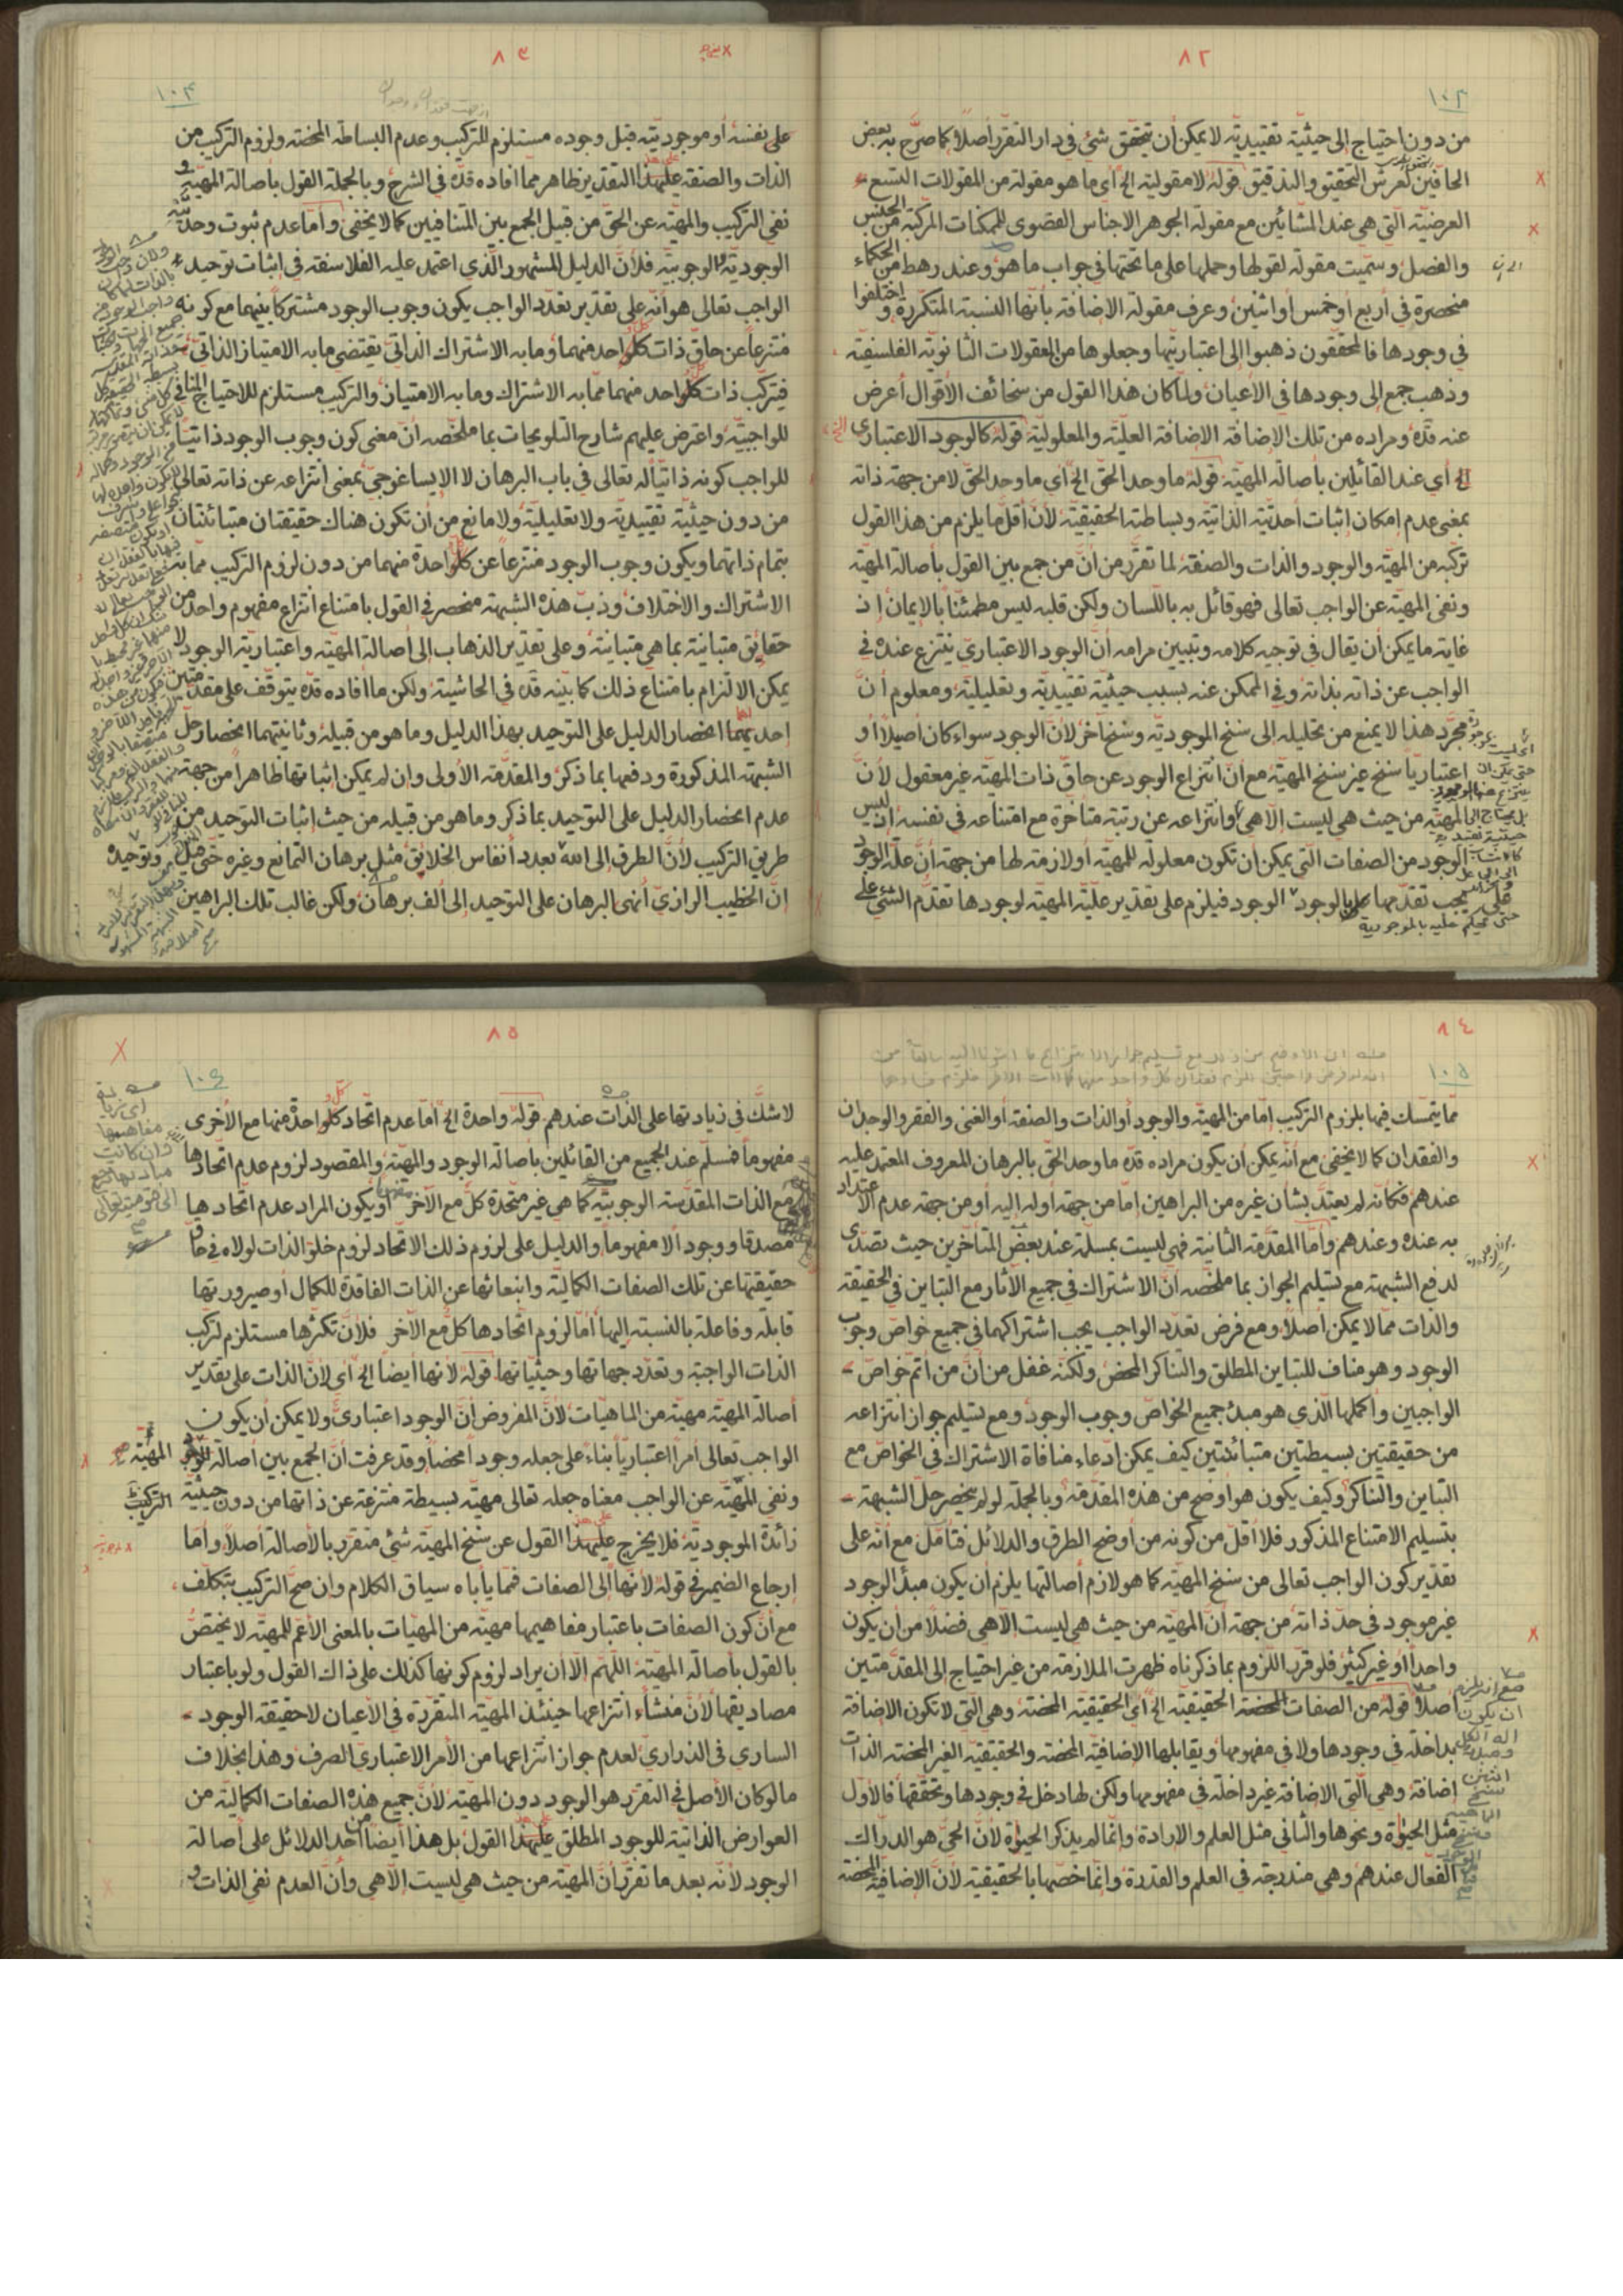 ٨٢
١٠٢
من دون احتياج إلى حيثيّة تقييديّة لا يمكن أن يتحقق شئ في دار التقرّر أصلًا كما صرّح به بعض
الحافّين لعرش التحقيق والتدقيق قوله لا مقولية الخ أي ما هو مقولة من المقولات التسع
العرضيّة الّتي هي عند المشّائين مع مقولة الجوهر الاجناس القصوى للممكنات المركّبة من الجنس
والفصل وسمّيت مقولة لقولها وحملها على ما تحتها في جواب ما هو وعند رهط من الحكماء
منحصرة في أربع أو خمس أو اثنين وعرف مقولة الاضافة بأنّها النسبة المتكرّرة و اختلفوا
في وجودها فالمحققون ذهبوا إلى اعتباريتها وجعلوها من المعقولات الثانويّة الفلسفيّة
وذهب جمع إلى وجودها في الاعيان ولمّا كان هذا القول من سخائف الأقوال أعرض
عنه قدّه ومراده من تلك الإضافة الاضافة العليّة والمعلوليّة قوله كالوجود الاعتباري
الخ أي عند القائلين بأصالة المهيّة قوله ما وحد الحقّ الخ أي ما وحد الحقّ لا من جهة ذاته
بمعنى عدم إمكان إثبات أحديّته الذاتيّة وبساطته الحقيقيّة لأنّ أقلّ ما يلزم من هذا القول
تركّبه من المهيّة والوجود والذات والصفة لما تقرّر من أنّ من جمع بين القول بأصالة المهيّة
ونفى المهيّة عن الواجب تعالى فهو قائل به باللّسان ولكن قلبه ليس مطمئنّا بالإيمان إذ
غاية ما يمكن أن يقال في توجيه كلامه وتبيين مرامه أنّ الوجود الاعتباريّ ينتزع عنده في
الواجب عن ذاته بذاته وفي الممكن عنه بسبب حيثيّة تقييديّة وتعليليّة ومعلوم أنّ
مجرّد هذا لا يمنع من تحليله إلى سنخ الموجوديّة وسنخ آخر لأنّ الوجود سواء كان أصيلًا أو
اعتباريًّا سنخ غير سنخ المهيّة مع أنّ انتزاع الوجود عن حاقّ ذات المهيّة غير معقول لأنّ
المهيّة من حيث هي ليست إلّا هي وانتزاعه عن رتبة متأخّرة مع امتناعه في نفسه إذ ليس
الوجود من الصفات الّتي يمكن أن تكون معلولة للمهيّة أو لازمة لها من جهة أنّ علّة الوجود
يجب تقدّمها عليه بالوجود الوجود فيلزم على تقدير عليّة المهيّة لوجودها تقدّم الشئ على
٨٣
١٠٣
على نفسه أو موجوديّته قبل وجوده مستلزم للتركيب وعدم البساطة المحضة ولزوم التركيب من
الذات والصفة على هذا التقدير ظاهر ممّا أفاده قدّه في الشرح وبالجملة القول بأصالة المهيّة و
نفي التركيب والمهيّة عن الحقّ من قبيل الجمع بين المتنافيين كما لا يخفى وأمّا عدم ثبوت وحدة
الوجوديّة الوجوبيّة فلأنّ الدليل المشهور الّذي اعتمد عليه الفلاسفة في اثبات توحيد
الواجب تعالى هو أنّه على تقدير تعدّد الواجب يكون وجوب الوجود مشتركًا بينهما مع كونه
منتزعًا عن حاقّ ذات كلّ واحد منهما وما به الاشتراك الذاتيّ يقتضي ما به الامتياز الذاتيّ
فيتركّب ذات كلّ واحد منهما ممّا به الاشتراك وما به الامتياز والتركيب مستلزم للاحتياج المنافي
للواجبيّة واعترض عليهم شارح التلويحات بما ملخّصه أنّ معنى كون وجوب الوجود ذاتيًّا
للواجب كونه ذاتيًّا له تعالى في باب البرهان لا الايساغوجي بمعنى انتزاعه عن ذاته تعالى
من دون حيثيّة تقييديّة ولا تعليليّة ولا مانع من أن تكون هناك حقيقتان متبائنتان
بتمام ذاتهما ويكون وجوب الوجود منتزعًا عن كلّ واحدة منهما من دون لزوم التركيب ممّا به
الاشتراك والاختلاف وذبّ هذه الشبهة منحصر في القول بامتناع انتزاع مفهوم واحد من
حقايق متبائنة بما هي متبائنة وعلى تقدير الذهاب إلى أصالة المهيّة واعتباريّة الوجود لا
يمكن الالتزام بامتناع ذلك كما بيّنه قدّه في الحاشية ولكن ما أفاده قدّه يتوقّف على مقدّمتين
إحديهما انحصار الدليل على التوحيد بهذا الدليل وما هو من قبيله وثانيتهما انحصار حلّ
الشبهة المذكورة ودفعها بما ذكر والمقدّمة الأولى وإن لم يمكن إثباتها ظاهرًا من جهة
عدم انحصار الدليل على التوحيد بما ذكر وما هو من قبيله من حيث إثبات التوحيد من
طريق التركيب لأنّ الطرق إلى الله بعدد أنفاس الخلايق مثل برهان التمانع وغيره حتى قيل
إنّ الخطيب الرازي أنهى البرهان على التوحيد إلى ألف برهان ولكن غالب تلك البراهين
٨٤
١٠٥
ممّا يتمسّك فيها بلزوم التركيب إمّا من المهيّة والوجود أو الذات والصفة أو الغنى والفقر والوجدان
والفقدان كما لا يخفى مع أنّه يمكن أن يكون مراده قدّه ما وحد الحقّ بالبرهان المعروف المعتمد عليه
عندهم فكأنّه لم يعتدّ بشأن غيره من البراهين إمّا من جهة أوله إليه أو من جهة عدم الاعتداد
به عنده وعندهم وأمّا المقدّمة الثانية فهي ليست بمسلّمة عند بعض المتأخّرين حيث تصدّى
لدفع الشبهة مع تسليم الجواز بما ملخّصه أنّ الاشتراك في جميع الآثار مع التباين في الحقيقة
والذات ممّا لا يمكن أصلًا ومع فرض تعدّد الواجب يجب اشتراكهما في جميع خواصّ وجوب
الوجود وهو مناف للتباين المطلق والتناكر المحض ولكنّه غفل من أنّ من أتمّ خواصّ
الواجبين وأكملها الّذي هو مبدء جميع الخواصّ وجوب الوجود ومع تسليم جواز انتزاعه
من حقيقتين بسيطتين متبائنتين كيف يمكن ادّعاء منافاة الاشتراك في الخواصّ مع
التباين والتناكر وكيف يكون هو أوضح من هذه المقدّمة وبالجملة لو لم ينحصر حلّ الشبهة
بتسليم الامتناع المذكور فلا أقلّ من كونه من أوضح الطرق والدلائل فتأمّل مع أنّه على
تقدير كون الواجب تعالى من سنخ المهيّة كما هو لازم أصالتها يلزم أن يكون مبدأ الوجود
غير موجود في حدّ ذاته من جهة أنّ المهيّة من حيث هي ليست إلّا هي فضلًا من أن يكون
واحدًا أو غير كثير فلو قرّر اللزوم بما ذكرناه ظهرت الملازمة من غير احتياج إلى المقدّمتين
أصلًا قوله من الصفات المحضة الحقيقيّة الخ أي الحقيقيّة المحضة وهي الّتي لا تكون الاضافة
بداخلة في وجودها ولا في مفهومها ويقابلها الاضافيّة المحضة والحقيقيّة الغير المحضة الذات
اضافة وهي الّتي الاضافة غير داخلة في مفهومها ولكن لها دخل في وجودها وتحقّقها فالأوّل
مثل الحيوة ونحوها والثاني مثل العلم والارادة وإنّما لم يذكر الحيوة لأنّ الحيّ هو الدرّاك
الفعّال عندهم وهي مندرجة في العلم والقدرة وإنّما خصّها بالحقيقيّة لأنّ الاضافيّة المحضة
٨٥
١٠٤
لا شكّ في زيادتها على الذات عندهم قوله واحدة الخ أمّا عدم اتّحاد كلّ واحدة منها مع الأخرى
مفهومًا فمسلّم عند الجميع من القائلين بأصالة الوجود والمهيّة والمقصود لزوم عدم اتّحادها
مع الذات المقدّسة الوجوبيّة كما هي غير متّحدة كلّ مع الآخر أو يكون المراد عدم اتّحادها
مصداقًا ووجودًا لا مفهومًا والدليل على لزوم ذلك الاتّحاد لزوم خلوّ الذات لولاه في حاقّ
حقيقتها عن تلك الصفات الكماليّة وانبعاثها عن الذات الفاقدة للكمال أو صيرورتها
قابلة وفاعلة بالنسبة إليها أمّا لزوم اتّحادها كلّ مع الآخر فلأنّ تكثّرها مستلزم لتركّب
الذات الواجبة وتعدّد جهاتها وحيثيّاتها قوله لأنّها أيضًا الخ أي لأنّ الذات على تقدير
أصالة المهيّة مهيّة من الماهيّات لأنّ المفروض أنّ الوجود اعتباريّ ولا يمكن أن يكون
الواجب تعالى أمرًا اعتباريًّا بناء على جعله وجودًا محضًا وقد عرفت أنّ الجمع بين أصالة المهيّة
ونفي المهيّة عن الواجب معناه جعله تعالى مهيّة بسيطة منتزعة عن ذاتها من دون حيثيّة
زائدة الموجوديّة فلا يخرج على هذا القول عن سنخ المهيّة شئ متقرّر بالأصالة أصلًا وأمّا
ارجاع الضمير في قوله لأنّها إلى الصفات فممّا يأباه سياق الكلام وإن صحّ التركيب بتكلّف
مع أنّ كون الصفات باعتبار مفاهيمها مهيّة من المهيّات بالمعنى الأعمّ للمهيّة لا يختصّ
بالقول بأصالة المهيّة اللهمّ إلّا أن يراد لزوم كونها كذلك على ذاك القول ولو باعتبار
مصاديقها لأنّ منشاء انتزاعها حينئذ المهيّة المتقرّرة في الأعيان لا حقيقة الوجود
الساري في الذراري لعدم جواز انتزاعها من الأمر الاعتباري الصرف وهذا بخلاف
ما لو كان الأصل في التقرّر هو الوجود دون المهيّة لأنّ جميع هذه الصفات الكماليّة من
العوارض الذاتيّة للوجود المطلق على هذا القول بل هذا أيضًا من أحد الدلائل على أصالة
الوجود لأنّه بعد ما تقرّر أنّ المهيّة من حيث هي ليست إلّا هي وأنّ العدم نفي الذات و